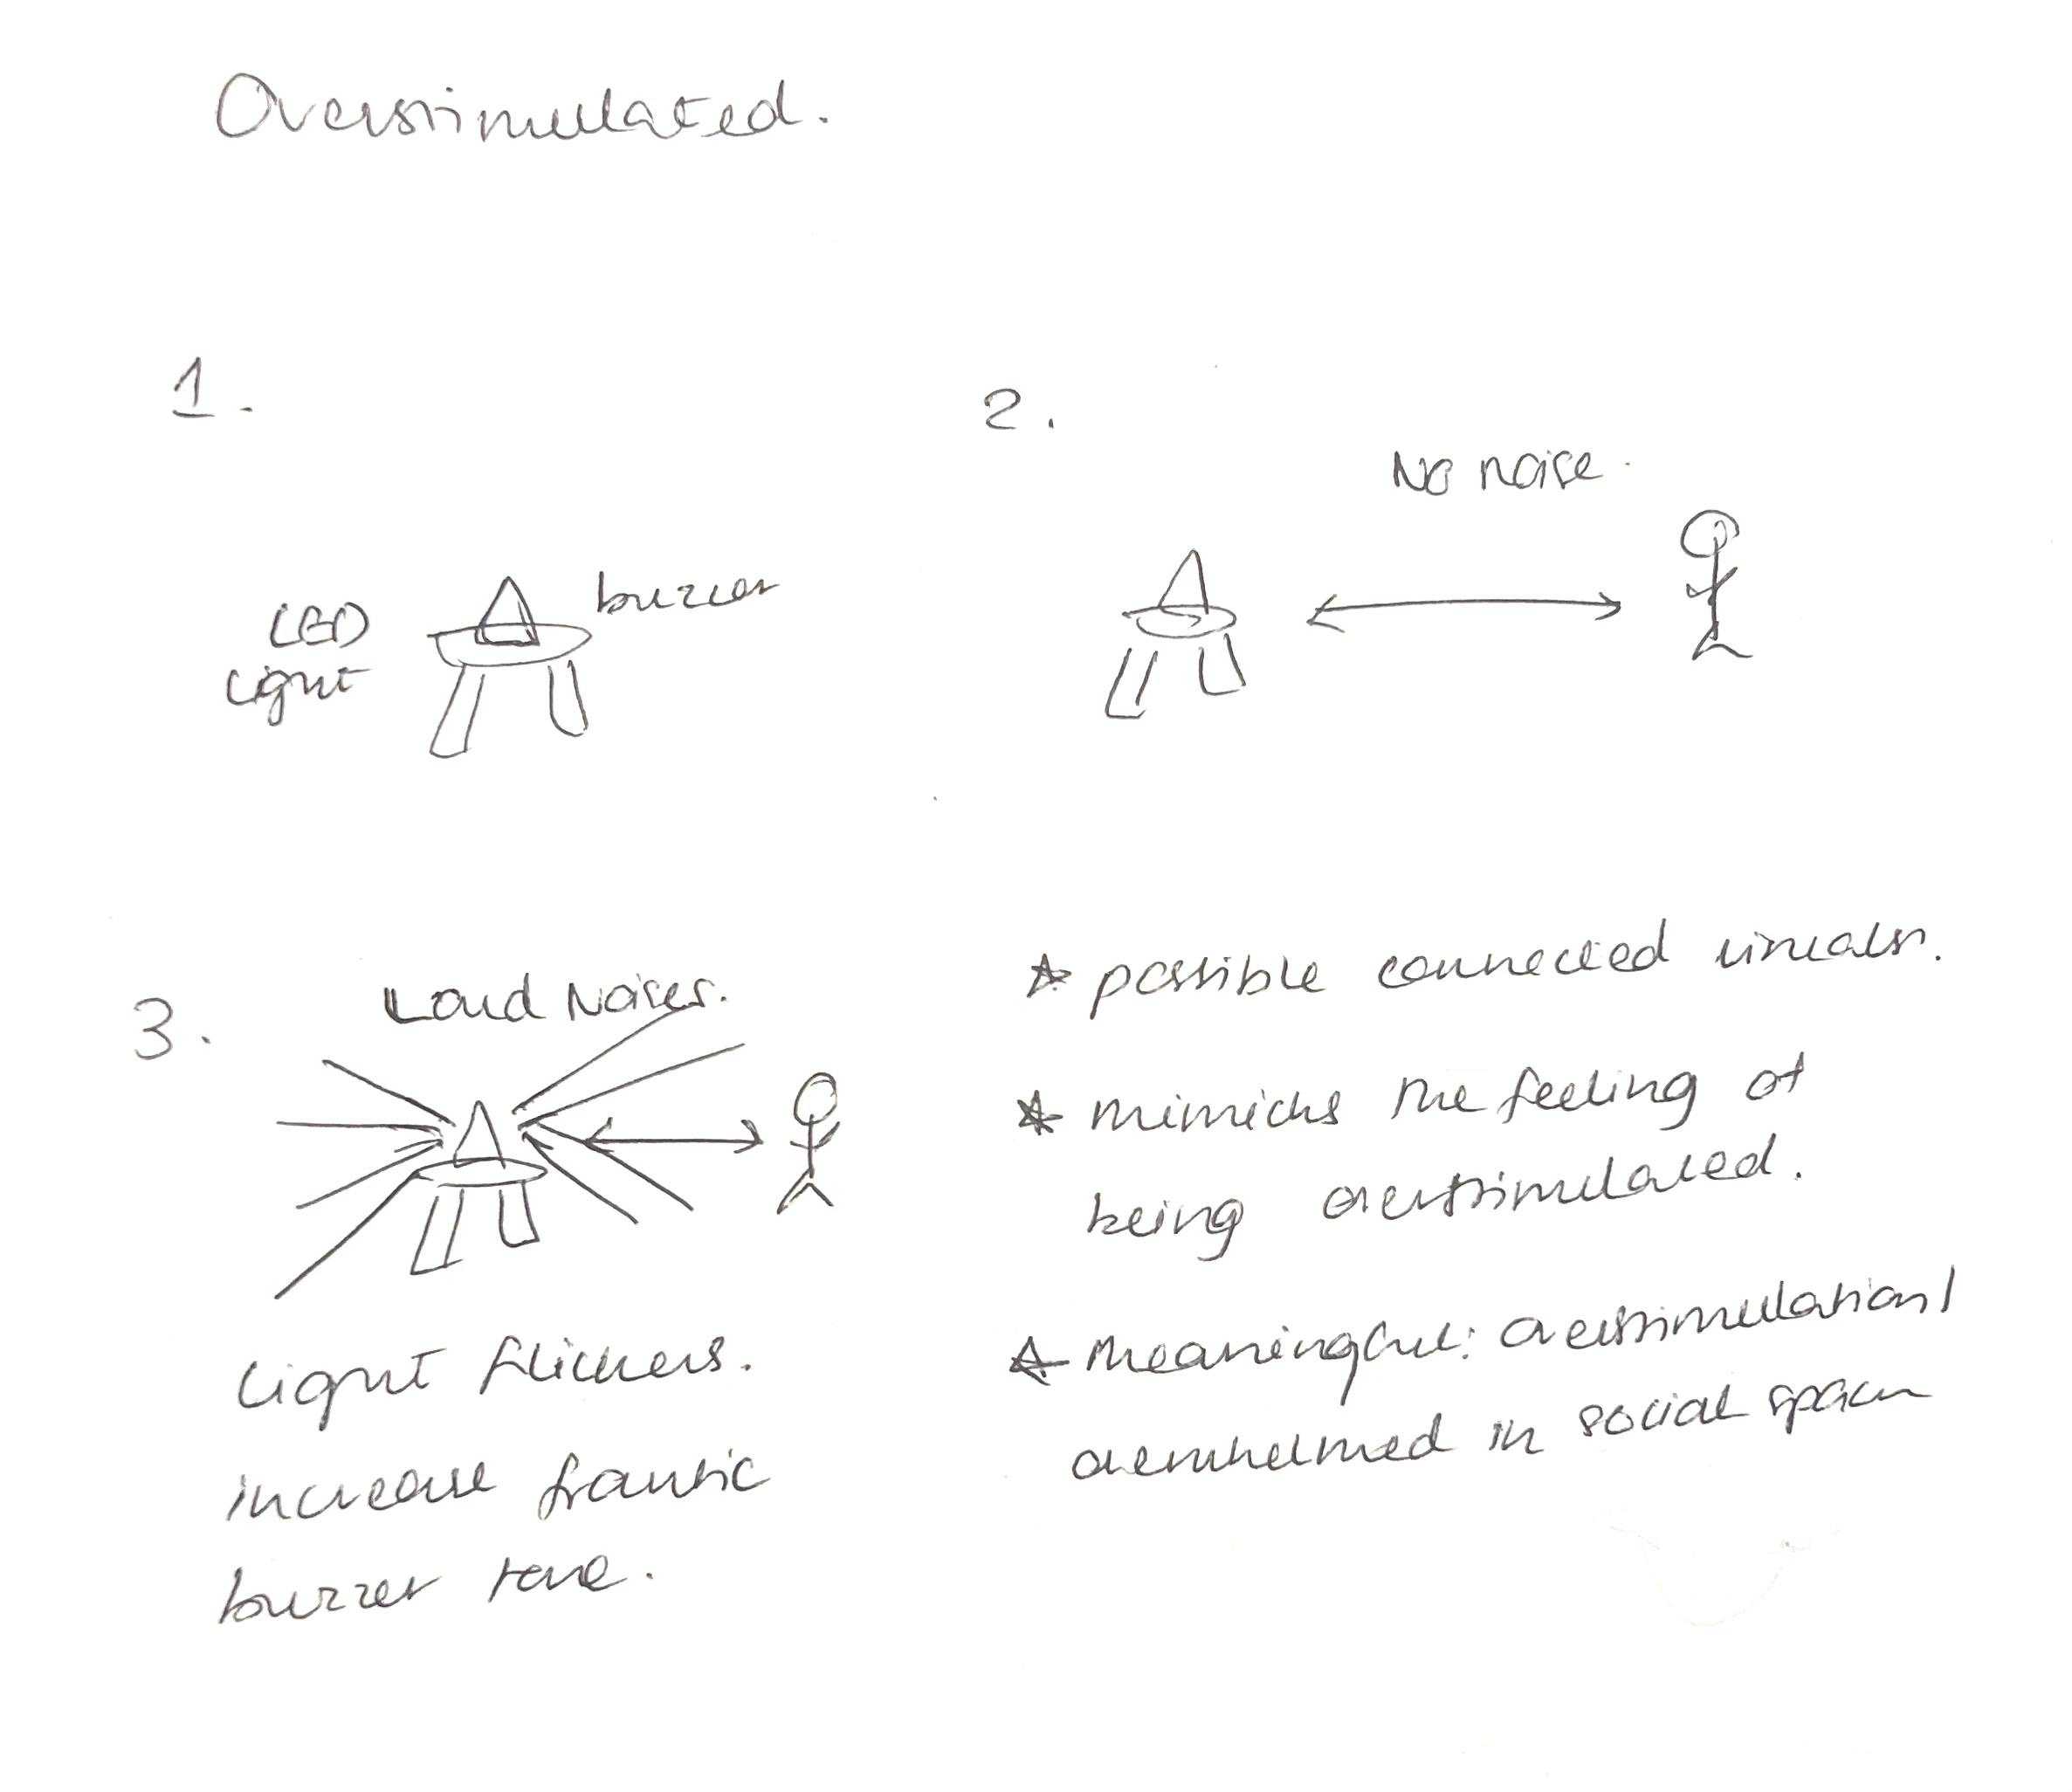 Overstimulated.
1.
LED
Light
buzzer
2.
No noise.
3.
Loud Noises.
Light flickers.
increase frantic
buzzer tone.
* possible connected visuals.
* mimicks the feeling of
being overstimulated.
* Meaningful: overstimulation /
overwhelmed in social spaces